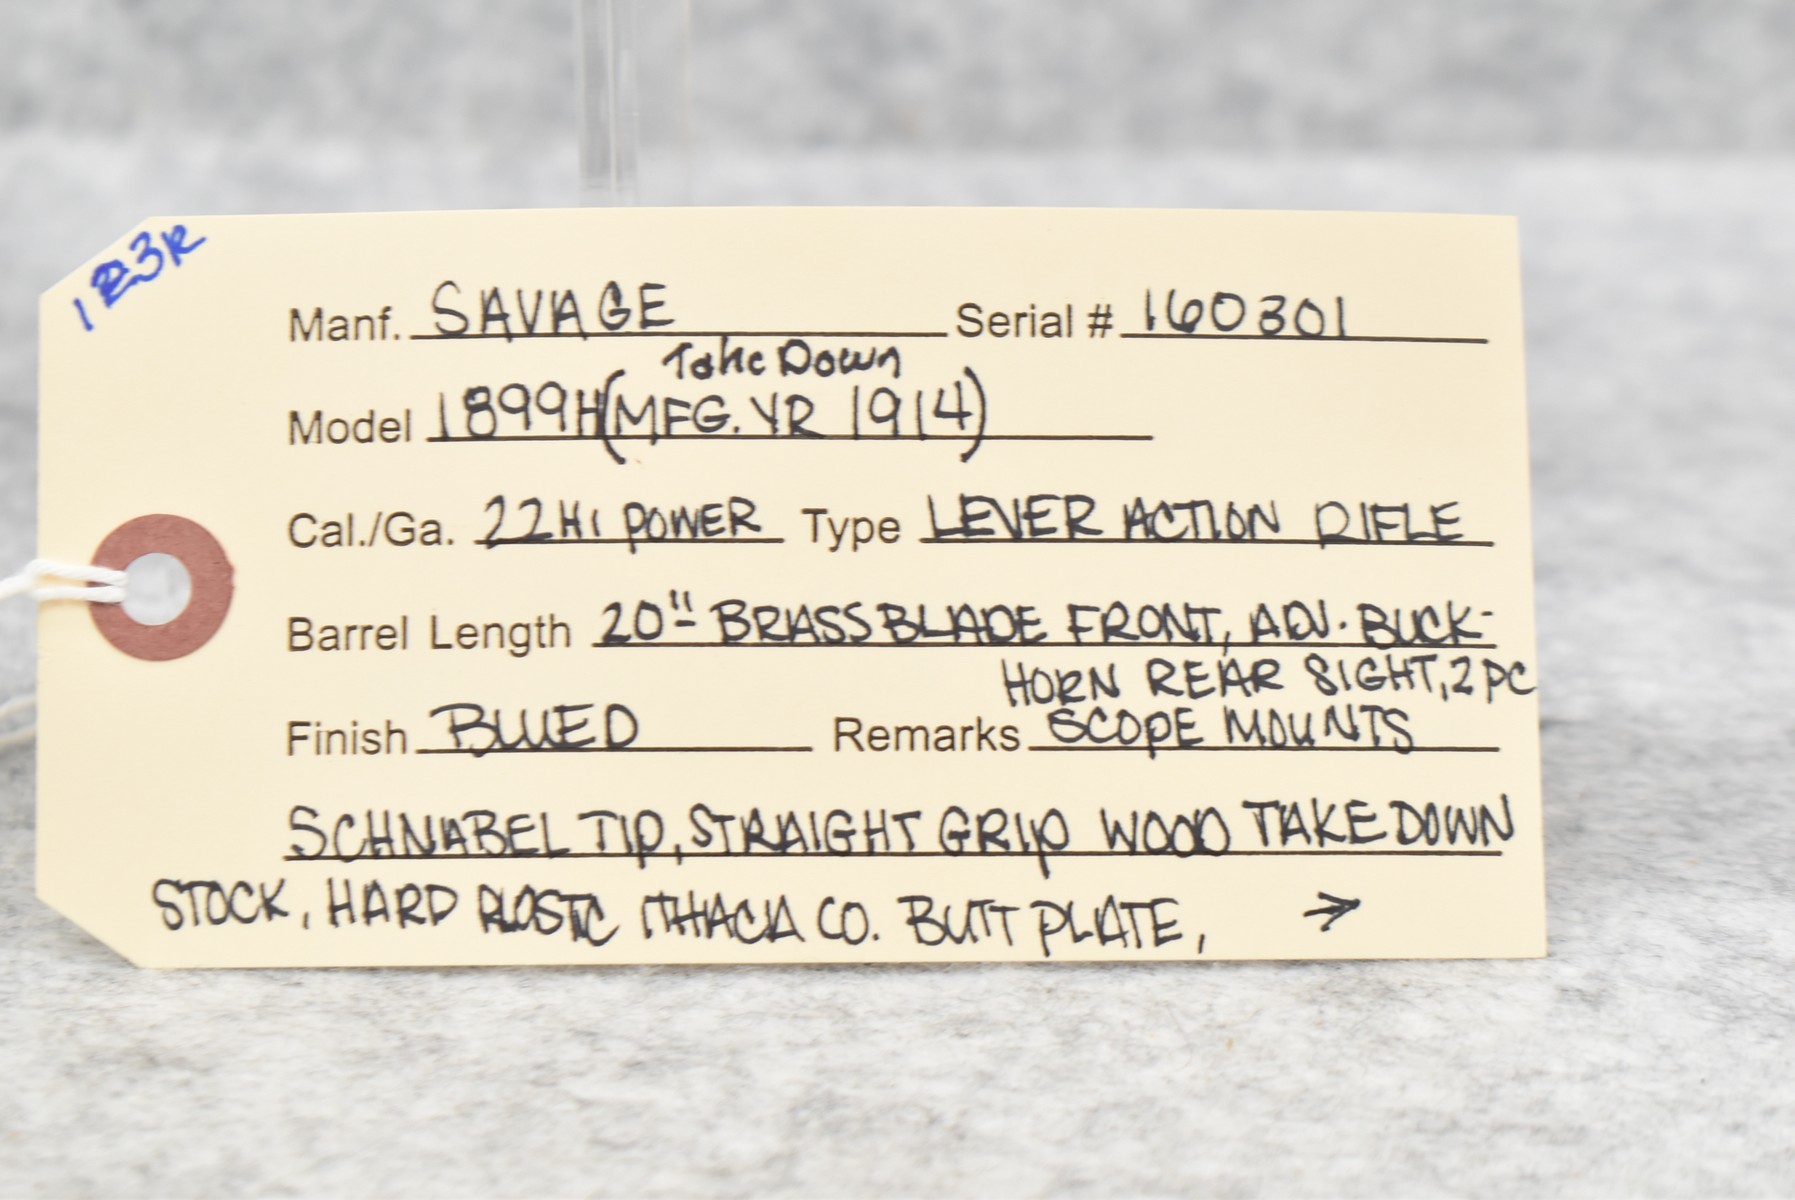 123R
Manf. SAVAGE Serial # 160301
Take Down
Model 1899H (MFG. YR 1914)
Cal./Ga. 22 HI POWER Type LEVER ACTION RIFLE
Barrel Length 20" BRASS BLADE FRONT, ADJ. BUCK-
HORN REAR SIGHT, 2 PC
Finish BLUED Remarks SCOPE MOUNTS
SCHNABEL TIP, STRAIGHT GRIP WOOD TAKEDOWN
STOCK, HARD PLASTC ITHACA CO. BUTT PLATE, →